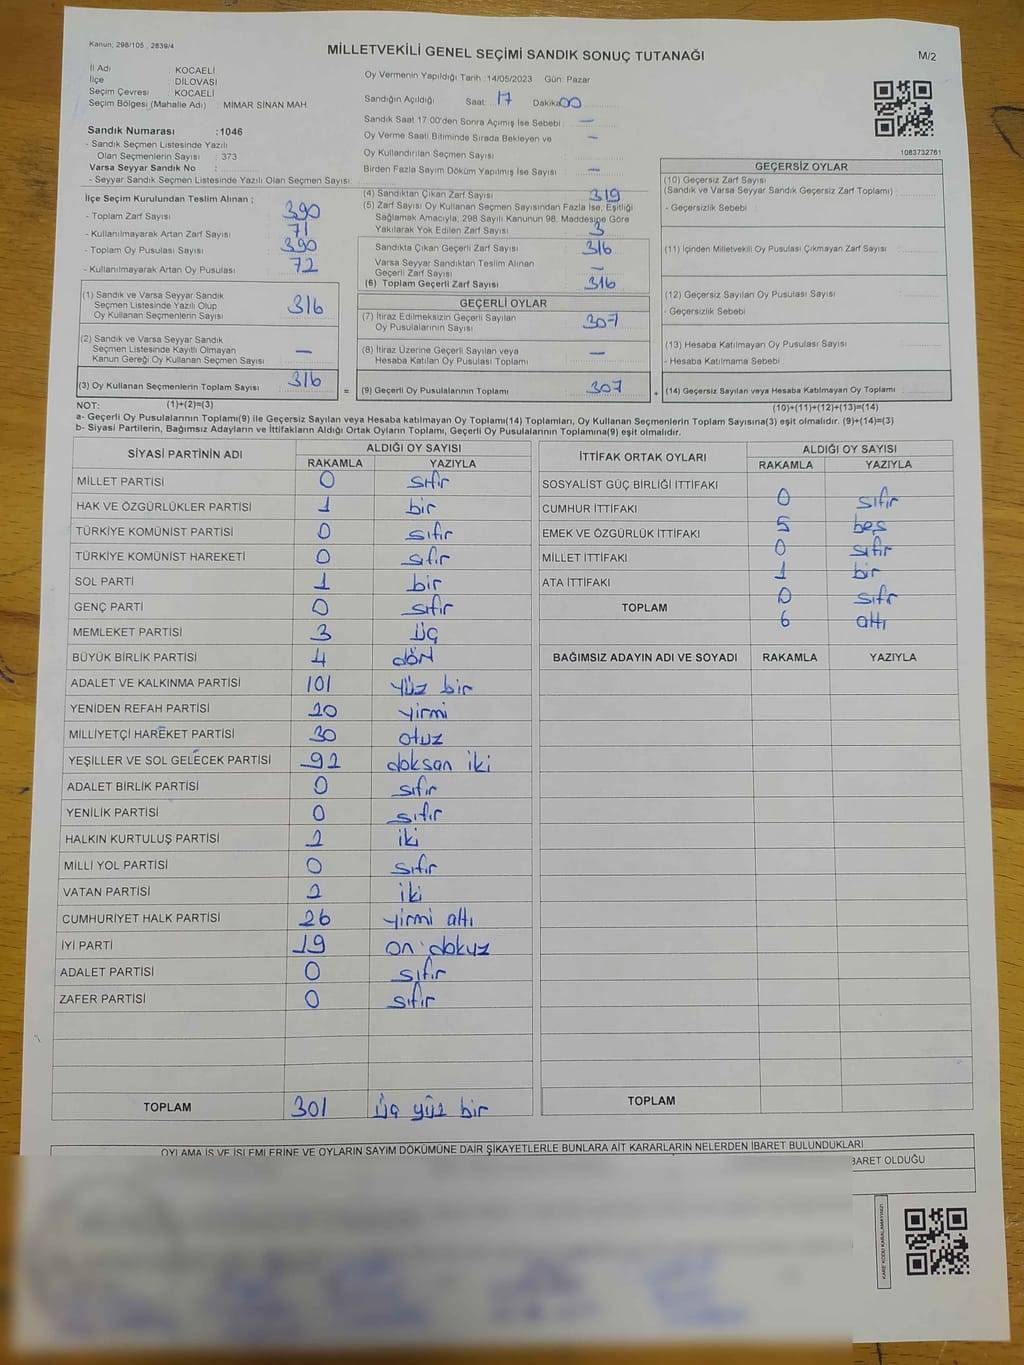 Kanun; 298/105 , 2839/4
MİLLETVEKİLİ GENEL SEÇİMİ SANDIK SONUÇ TUTANAĞI
M/2
İl Adı : KOCAELİ
İlçe : DİLOVASI
Seçim Çevresi : KOCAELİ
Seçim Bölgesi (Mahalle Adı) : MİMAR SİNAN MAH.
Sandık Numarası :1046
- Sandık Seçmen Listesinde Yazılı
Olan Seçmenlerin Sayısı : 373
Varsa Seyyar Sandık No :
- Seyyar Sandık Seçmen Listesinde Yazılı Olan Seçmen Sayısı:
İlçe Seçim Kurulundan Teslim Alınan ;
- Toplam Zarf Sayısı : 390
- Kullanılmayarak Artan Zarf Sayısı : 71
- Toplam Oy Pusulası Sayısı : 390
- Kullanılmayarak Artan Oy Pusulası : 72
(1) Sandık ve Varsa Seyyar Sandık
Seçmen Listesinde Yazılı Olup
Oy Kullanan Seçmenlerin Sayısı : 316
(2) Sandık ve Varsa Seyyar Sandık
Seçmen Listesinde Kayıtlı Olmayan
Kanun Gereği Oy Kullanan Seçmen Sayısı : —
(3) Oy Kullanan Seçmenlerin Toplam Sayısı : 316 =
Oy Vermenin Yapıldığı Tarih :14/05/2023 Gün: Pazar
Sandığın Açıldığı Saat: 17 Dakika: 00
Sandık Saat 17:00'den Sonra Açımış İse Sebebi : —
Oy Verme Saati Bitiminde Sırada Bekleyen ve —
Oy Kullandırılan Seçmen Sayısı :
Birden Fazla Sayım Döküm Yapılmış İse Sayısı : —
(4) Sandıktan Çıkan Zarf Sayısı : 319
(5) Zarf Sayısı Oy Kullanan Seçmen Sayısından Fazla İse, Eşitliği
Sağlamak Amacıyla, 298 Sayılı Kanunun 98. Maddesine Göre
Yakılarak Yok Edilen Zarf Sayısı : 3
Sandıkta Çıkan Geçerli Zarf Sayısı : 316
Varsa Seyyar Sandıktan Teslim Alınan
Geçerli Zarf Sayısı : —
(6) Toplam Geçerli Zarf Sayısı : 316
GEÇERLİ OYLAR
(7) İtiraz Edilmeksizin Geçerli Sayılan
Oy Pusulalarının Sayısı : 307
(8) İtiraz Üzerine Geçerli Sayılan veya
Hesaba Katılan Oy Pusulası Toplamı : —
(9) Geçerli Oy Pusulalarının Toplamı : 307 +
1083732761
GEÇERSİZ OYLAR
(10) Geçersiz Zarf Sayısı
(Sandık ve Varsa Seyyar Sandık Geçersiz Zarf Toplamı) :
- Geçersizlik Sebebi :
(11) İçinden Milletvekili Oy Pusulası Çıkmayan Zarf Sayısı :
(12) Geçersiz Sayılan Oy Pusulası Sayısı :
- Geçersizlik Sebebi :
(13) Hesaba Katılmayan Oy Pusulası Sayısı :
- Hesaba Katılmama Sebebi :
(14) Geçersiz Sayılan veya Hesaba Katılmayan Oy Toplamı :
NOT: (1)+(2)=(3) (10)+(11)+(12)+(13)=(14)
a- Geçerli Oy Pusulalarının Toplamı(9) ile Geçersiz Sayılan veya Hesaba katılmayan Oy Toplamı(14) Toplamları, Oy Kullanan Seçmenlerin Toplam Sayısına(3) eşit olmalıdır. (9)+(14)=(3)
b- Siyasi Partilerin, Bağımsız Adayların ve İttifakların Aldığı Ortak Oyların Toplamı, Geçerli Oy Pusulalarının Toplamına(9) eşit olmalıdır.
SİYASİ PARTİNİN ADI ALDIĞI OY SAYISI
RAKAMLA YAZIYLA
MİLLET PARTİSİ 0 sıfır
HAK VE ÖZGÜRLÜKLER PARTİSİ 1 bir
TÜRKİYE KOMÜNİST PARTİSİ 0 sıfır
TÜRKİYE KOMÜNİST HAREKETİ 0 sıfır
SOL PARTİ 1 bir
GENÇ PARTİ 0 sıfır
MEMLEKET PARTİSİ 3 üç
BÜYÜK BİRLİK PARTİSİ 4 dört
ADALET VE KALKINMA PARTİSİ 101 yüz bir
YENİDEN REFAH PARTİSİ 20 yirmi
MİLLİYETÇİ HAREKET PARTİSİ 30 otuz
YEŞİLLER VE SOL GELECEK PARTİSİ 92 doksan iki
ADALET BİRLİK PARTİSİ 0 sıfır
YENİLİK PARTİSİ 0 sıfır
HALKIN KURTULUŞ PARTİSİ 2 iki
MİLLİ YOL PARTİSİ 0 sıfır
VATAN PARTİSİ 2 iki
CUMHURİYET HALK PARTİSİ 26 yirmi altı
İYİ PARTİ 19 on dokuz
ADALET PARTİSİ 0 sıfır
ZAFER PARTİSİ 0 sıfır
TOPLAM 301 üç yüz bir
İTTİFAK ORTAK OYLARI ALDIĞI OY SAYISI
RAKAMLA YAZIYLA
SOSYALİST GÜÇ BİRLİĞİ İTTİFAKI 0 sıfır
CUMHUR İTTİFAKI 5 beş
EMEK VE ÖZGÜRLÜK İTTİFAKI 0 sıfır
MİLLET İTTİFAKI 1 bir
ATA İTTİFAKI 0 sıfır
TOPLAM 6 altı
BAĞIMSIZ ADAYIN ADI VE SOYADI RAKAMLA YAZIYLA
TOPLAM
OYLAMA İŞ VE İŞLEMLERİNE VE OYLARIN SAYIM DÖKÜMÜNE DAİR ŞİKAYETLERLE BUNLARA AİT KARARLARIN NELERDEN İBARET BULUNDUKLARI
BARET OLDUĞU
KARE KODU KARALAMAYINIZ!